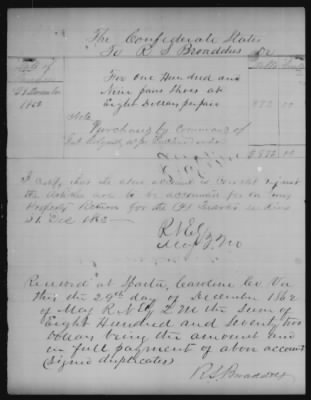 The Confederate States
To R S Broaddus Dr
Date of
Dolls Cents
For one Hundred and
29 December
1862
Nine pairs Shoes at
Eight Dollars per pair
872 00
Note
Purchased by Command of
$ 872.00
I certify that the above account is correct
the articles are to be accounted for on my
Property Return for the Quarter ending
31 Dec 1862
Received at Sparta, Caroline Co Va
this the 29th day of December 1862
of Maj R N Q M the Sum of
Eight Hundred and Seventy two
Dollars being the amount and
in full payment of above account
(Signed duplicates)
R. S. Broaddus